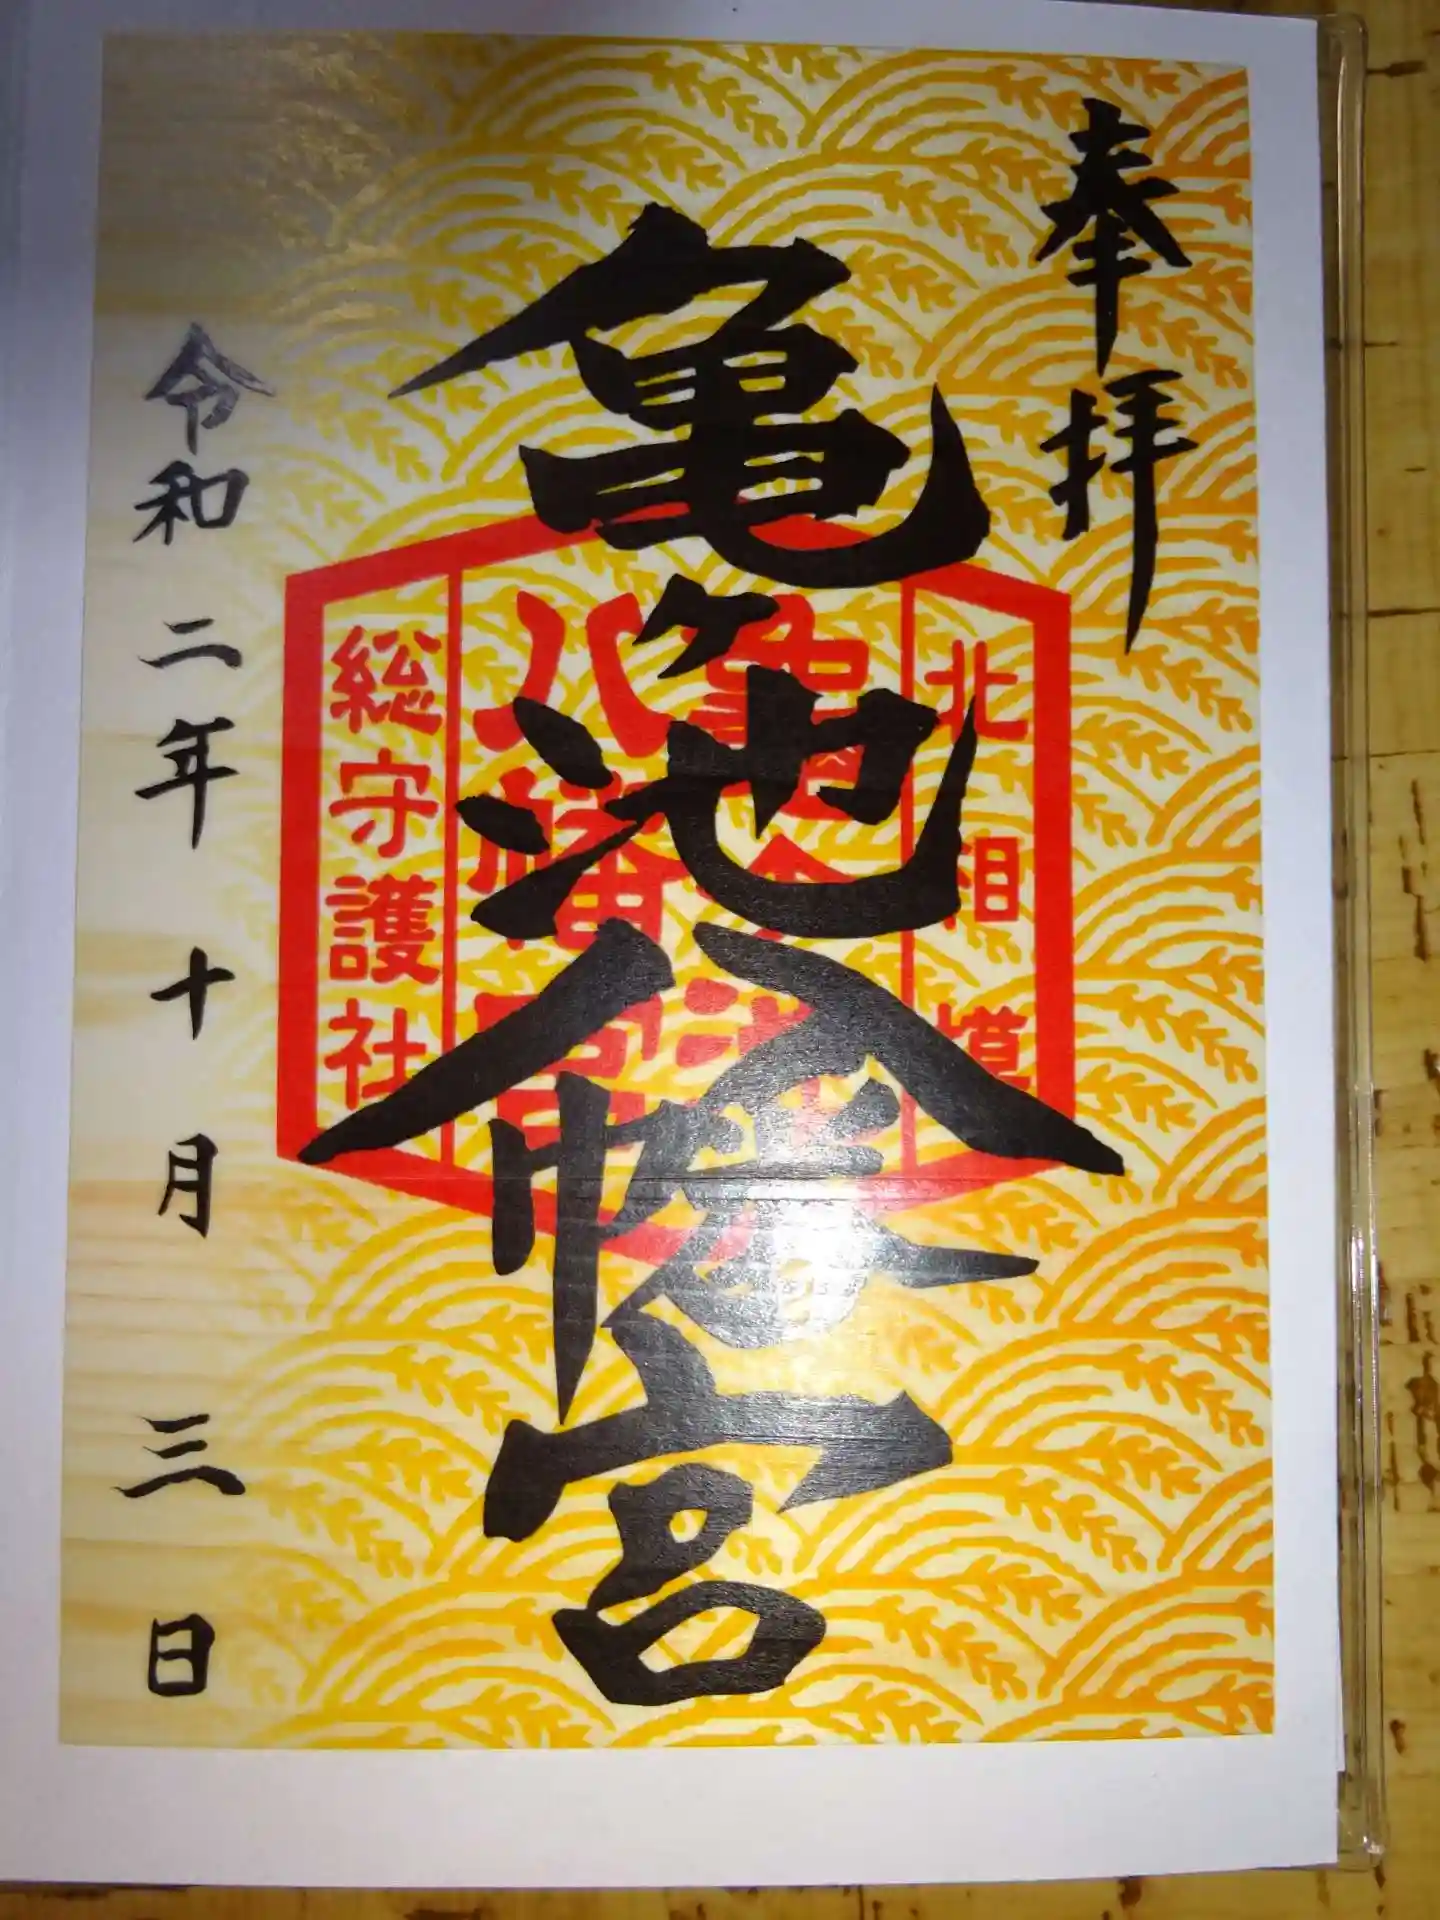 奉拝
亀ヶ池八幡宮
北相模
亀ヶ池
八幡宮
総守護社
令和二年十月三日